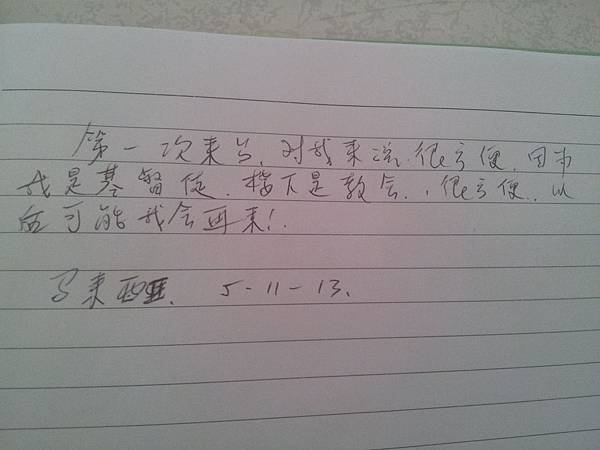 第一次来台,对我来说很方便,因为
我是基督徒.楼下是教会.,很方便.以
后可能我会再来!.
马来西亚. 5-11-13.